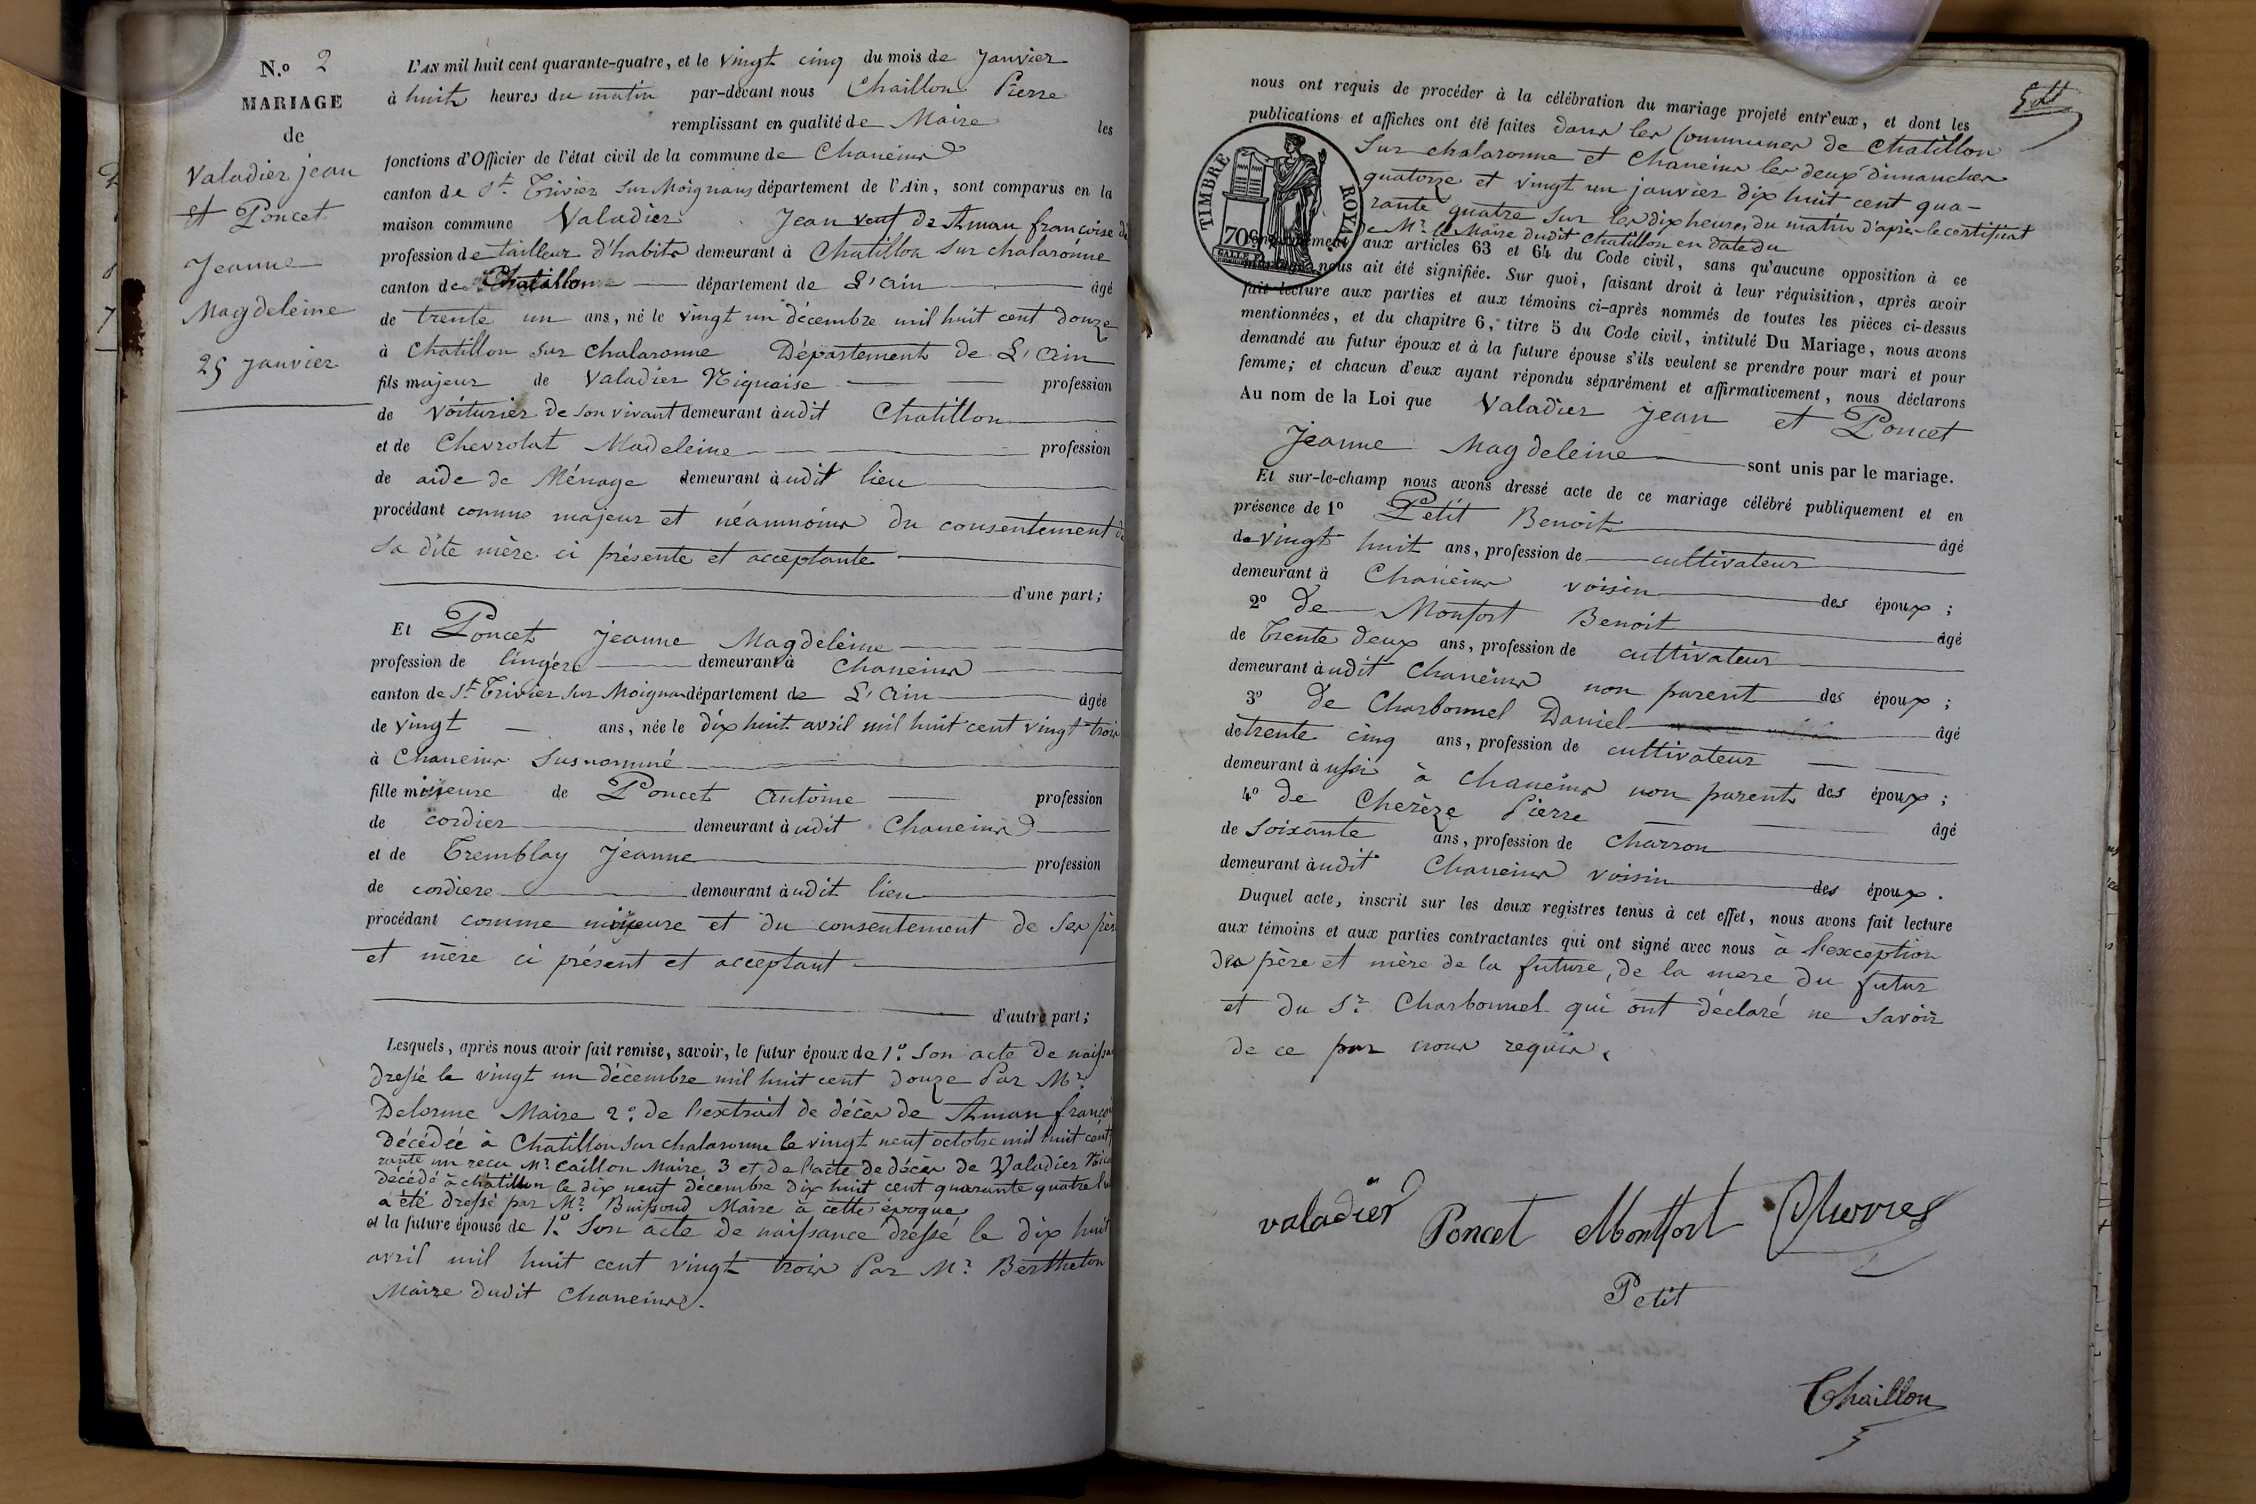 N.º 2
MARIAGE
de
Valadier jean
et Poncet
Jeanne
Magdeleine
25 janvier
L'AN mil huit cent quarante-quatre, et le vingt cinq du mois de Janvier
à huit heures du matin par-devant nous Chaillon Pierre
remplissant en qualité de Maire les
fonctions d'Officier de l'état civil de la commune de Chaneins
canton de St. Trivier sur Moignans département de l'Ain, sont comparus en la
maison commune Valadier Jean veuf de françoise
profession de tailleur d'habits demeurant à Chatillon sur chalaronne
canton de Chatillon département de L'ain âgé
de trente un ans, né le vingt un décembre mil huit cent douze
à Chatillon sur Chalaronne Département de L'ain
fils majeur de Valadier profession
de voiturier de son vivant demeurant àudit Chatillon
et de Chevrolat Madeleine profession
de aide de Ménage demeurant àudit lieu
procédant comme majeur et néanmoins du consentement de
sa dite mère ci présente et acceptante
d'une part;
Et Poncet Jeanne Magdeleine
profession de lingère demeurant à Chaneins
canton de St. Trivier sur Moignans département de L'ain âgée
de vingt ans, née le dix huit avril mil huit cent vingt trois
à Chaneins susnommé
fille mineure de Poncet Antoine profession
de cordier demeurant àudit Chaneins
et de Tremblay Jeanne profession
de cordiere demeurant àudit lieu
procédant comme mineure et du consentement de ses père
et mère ci présent et acceptant
d'autre part;
Lesquels, après nous avoir fait remise, savoir, le futur époux de 1.º Son acte de
dressé le vingt un décembre mil huit cent douze Par Mr.
Delorme Maire 2.º de l'extrait de décès de
décédée à Chatillon sur chalaronne le vingt neuf octobre mil huit cent
rante un reçu Mr. Caillon Maire 3 et de l'acte de décès de Valadier
décédé à chatillon le dix neuf décembre dix huit cent quarante quatre
a été dressé par Mr. Maire à cette époque
et la future épouse de 1.º Son acte de naissance dressé le dix huit
avril mil huit cent vingt trois Par Mr. Bertheton
Maire dudit Chaneins.
nous ont requis de procéder à la célébration du mariage projeté entr'eux, et dont les
publications et affiches ont été faites dans les Communes de Chatillon
Sur chalaronne et Chaneins les deux dimanches
quatorze et vingt un janvier dix huit cent qua-
rante quatre sur les dix heures du matin d'après le certificat
de Mr. le Maire dudit Chatillon en date du
TIMBRE ROYAL
70c
aux articles 63 et 64 du Code civil, sans qu'aucune opposition à ce
nous ait été signifiée. Sur quoi, faisant droit à leur réquisition, après avoir
fait lecture aux parties et aux témoins ci-après nommés de toutes les pièces ci-dessus
mentionnées, et du chapitre 6, titre 5 du Code civil, intitulé Du Mariage, nous avons
demandé au futur époux et à la future épouse s'ils veulent se prendre pour mari et pour
femme; et chacun d'eux ayant répondu séparément et affirmativement, nous déclarons
Au nom de la Loi que Valadier Jean et Poncet
Jeanne Magdeleine sont unis par le mariage.
Et sur-le-champ nous avons dressé acte de ce mariage célébré publiquement et en
présence de 1º Petit Benoit âgé
de vingt huit ans, profession de cultivateur
demeurant à Chaneins voisin des époux;
2º de Monfort Benoit âgé
de trente deux ans, profession de cultivateur
demeurant àudit Chaneins non parent des époux;
3º de Charbonnel Daniel âgé
de trente cinq ans, profession de cultivateur
demeurant aussi à Chaneins non parent des époux;
4º de Pierre âgé
de Soixante ans, profession de Charron
demeurant àudit Chaneins voisin des époux.
Duquel acte, inscrit sur les deux registres tenus à cet effet, nous avons fait lecture
aux témoins et aux parties contractantes qui ont signé avec nous à l'exception
des père et mère de la future, de la mere du futur
et du Sr. Charbonnel qui ont déclaré ne savoir
de ce par nous requis.
valadier Poncet Montfort
Petit
Chaillon